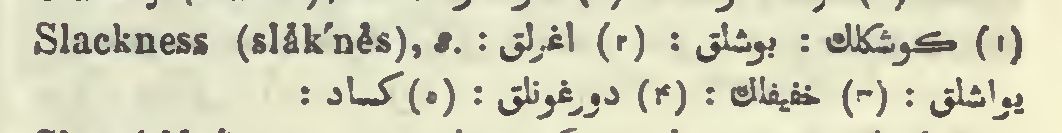 Slackness (slăk′nĕs), s. : (١) كوشكلك : بوشلق : (٢) اغرلق :
يواشلق : (٣) خفيفلك : (۴) دورغونلق : (٥) كساد :